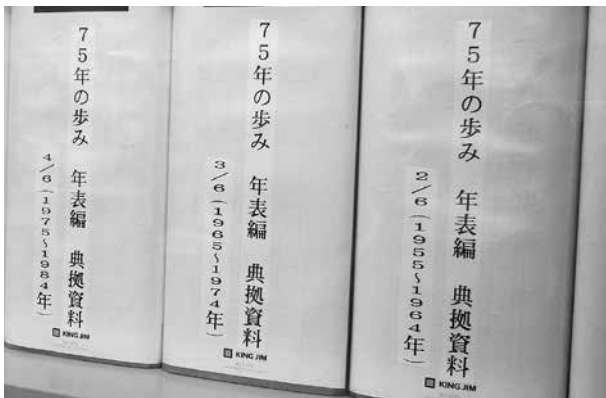 75年の歩み 年表編 典拠資料
2/6(1955~1964年)
KING JIM
75年の歩み 年表編 典拠資料
3/6(1965~1974年)
KING JIM
75年の歩み 年表編 典拠資料
4/6(1975~1984年)
KING JIM